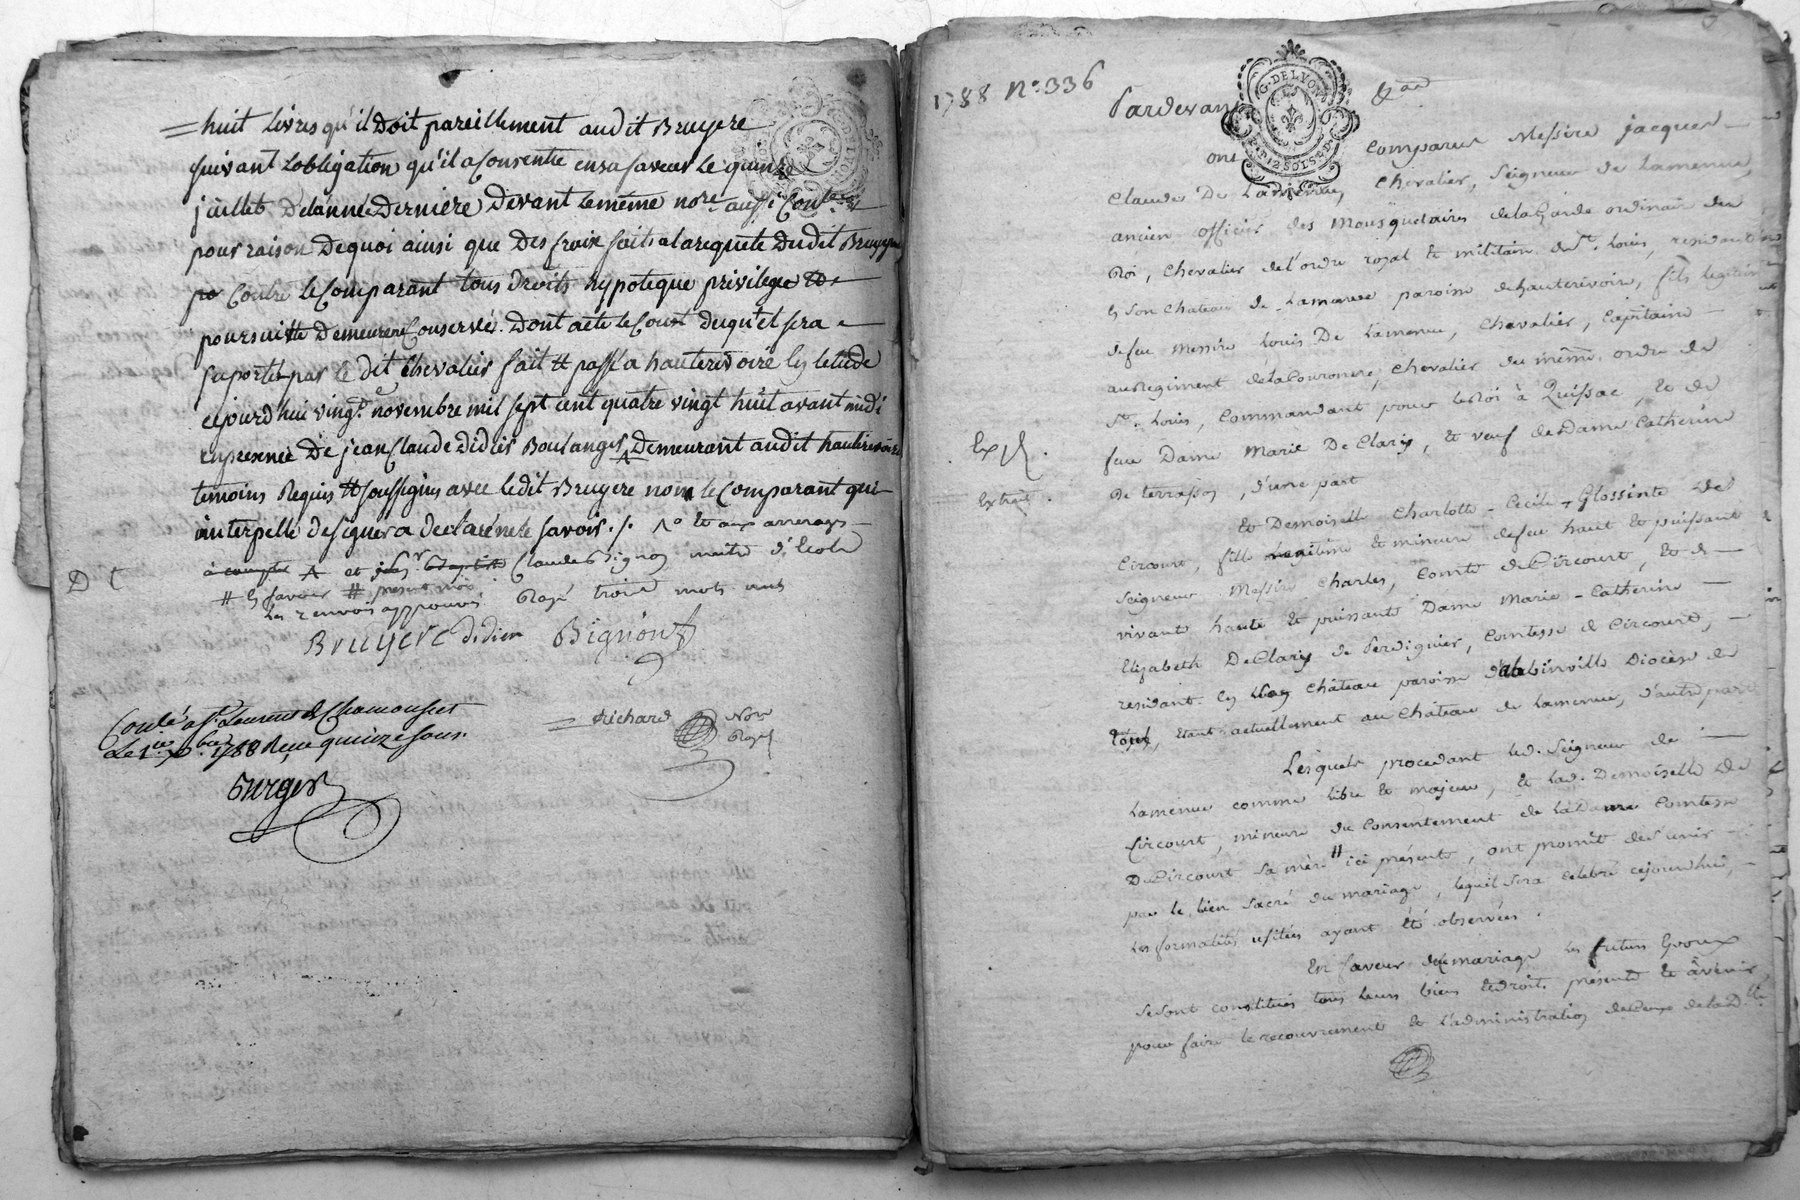 huit Livres qu'il Doit pareillement audit Bruyere
suivant Lobligation qu'il a Consentie en sa faveur Le quinze
juillet De lannée Derniere Devant le même nore. aussi Conle.
pour raison De quoi ainsi que Des fraix faits a la requete Dudit Bruyere
po Contre le Comparant tous Droits hypoteque privilege &
poursuitte Demeurent Conservés. Dont acte le Coust duquel sera
suporté par le dit Chevalier fait et passé a hauterivoire En letude
cejourd'hui vingt novembre mil sept cent quatre vingt huit avant midi
en presence De jean Claude Didier Boulanger Demeurant audit hauterivoire
temoins Requis et soussignés avec ledit Bruyere non le Comparant qui
interpellé de signer a declaré ne le savoir. /. et aux arrerages
a compte et Claude Bignon maitre d'Ecole
# En faveur # present moi
Les 2 renvois approuvés Rayé trois mots nuls
D C
Bruyere didier Bignon
Conlé a St. Laurent de Chamousset
Le 1er Xbre. 1788 Reçu quinze sous.
Richard Nore
Royal
Burger
1788 No. 336
G. DE LYON
Pardevant &ca
ont Comparus Messire jacques
Claude De Lamenue, Chevalier, Seigneur de Lamenue,
ancien officier des Mousquetaires de la Garde ordinaire du
Roi, Chevalier de l'ordre royal & militaire de St. Louis, residant
En son Chateau de Lamenue paroisse de hauterivoire, fils legitime
de feu Messire Louis De Lamenue, Chevalier, Capitaine
au Regiment de la Couronne, Chevalier du même ordre de
St. Louis, Commandant pour le Roi à Quissac, et de
Exp.
feue Dame Marie De Clary, et veuf de Dame Catherine
Extrait.
De terrasson, d'une part
Et Demoiselle Charlotte - Cecile + Glossinte de
Circourt, fille legitime et mineure de feu haut et puissant
Seigneur Messire Charles, Comte de Circourt, et de
vivante haute et puissante Dame Marie - Catherine
Elizabeth De Clary de Perdiguier, Comtesse de Circourt,
residant En son Château paroisse d'albinville Diocèse de
toul, etant actuellement au Château de Lamenue, d'autre part
Lesquels procedant led. Seigneur de
Lamenue comme libre et majeur, et lad. Demoiselle de
Circourt, mineure du Consentement de la Dame Comtesse
De Circourt sa mère # ici présente, ont promit de s'unir
par le lien sacré du mariage, lequel sera celebré cejourd'hui,
les formalités usitées ayant été observées.
En faveur du mariage les futurs Epoux
se sont constitués tous leurs biens et droits présents et avenir,
pour faire le recouvrement et l'administration de Ceux de la Dlle.